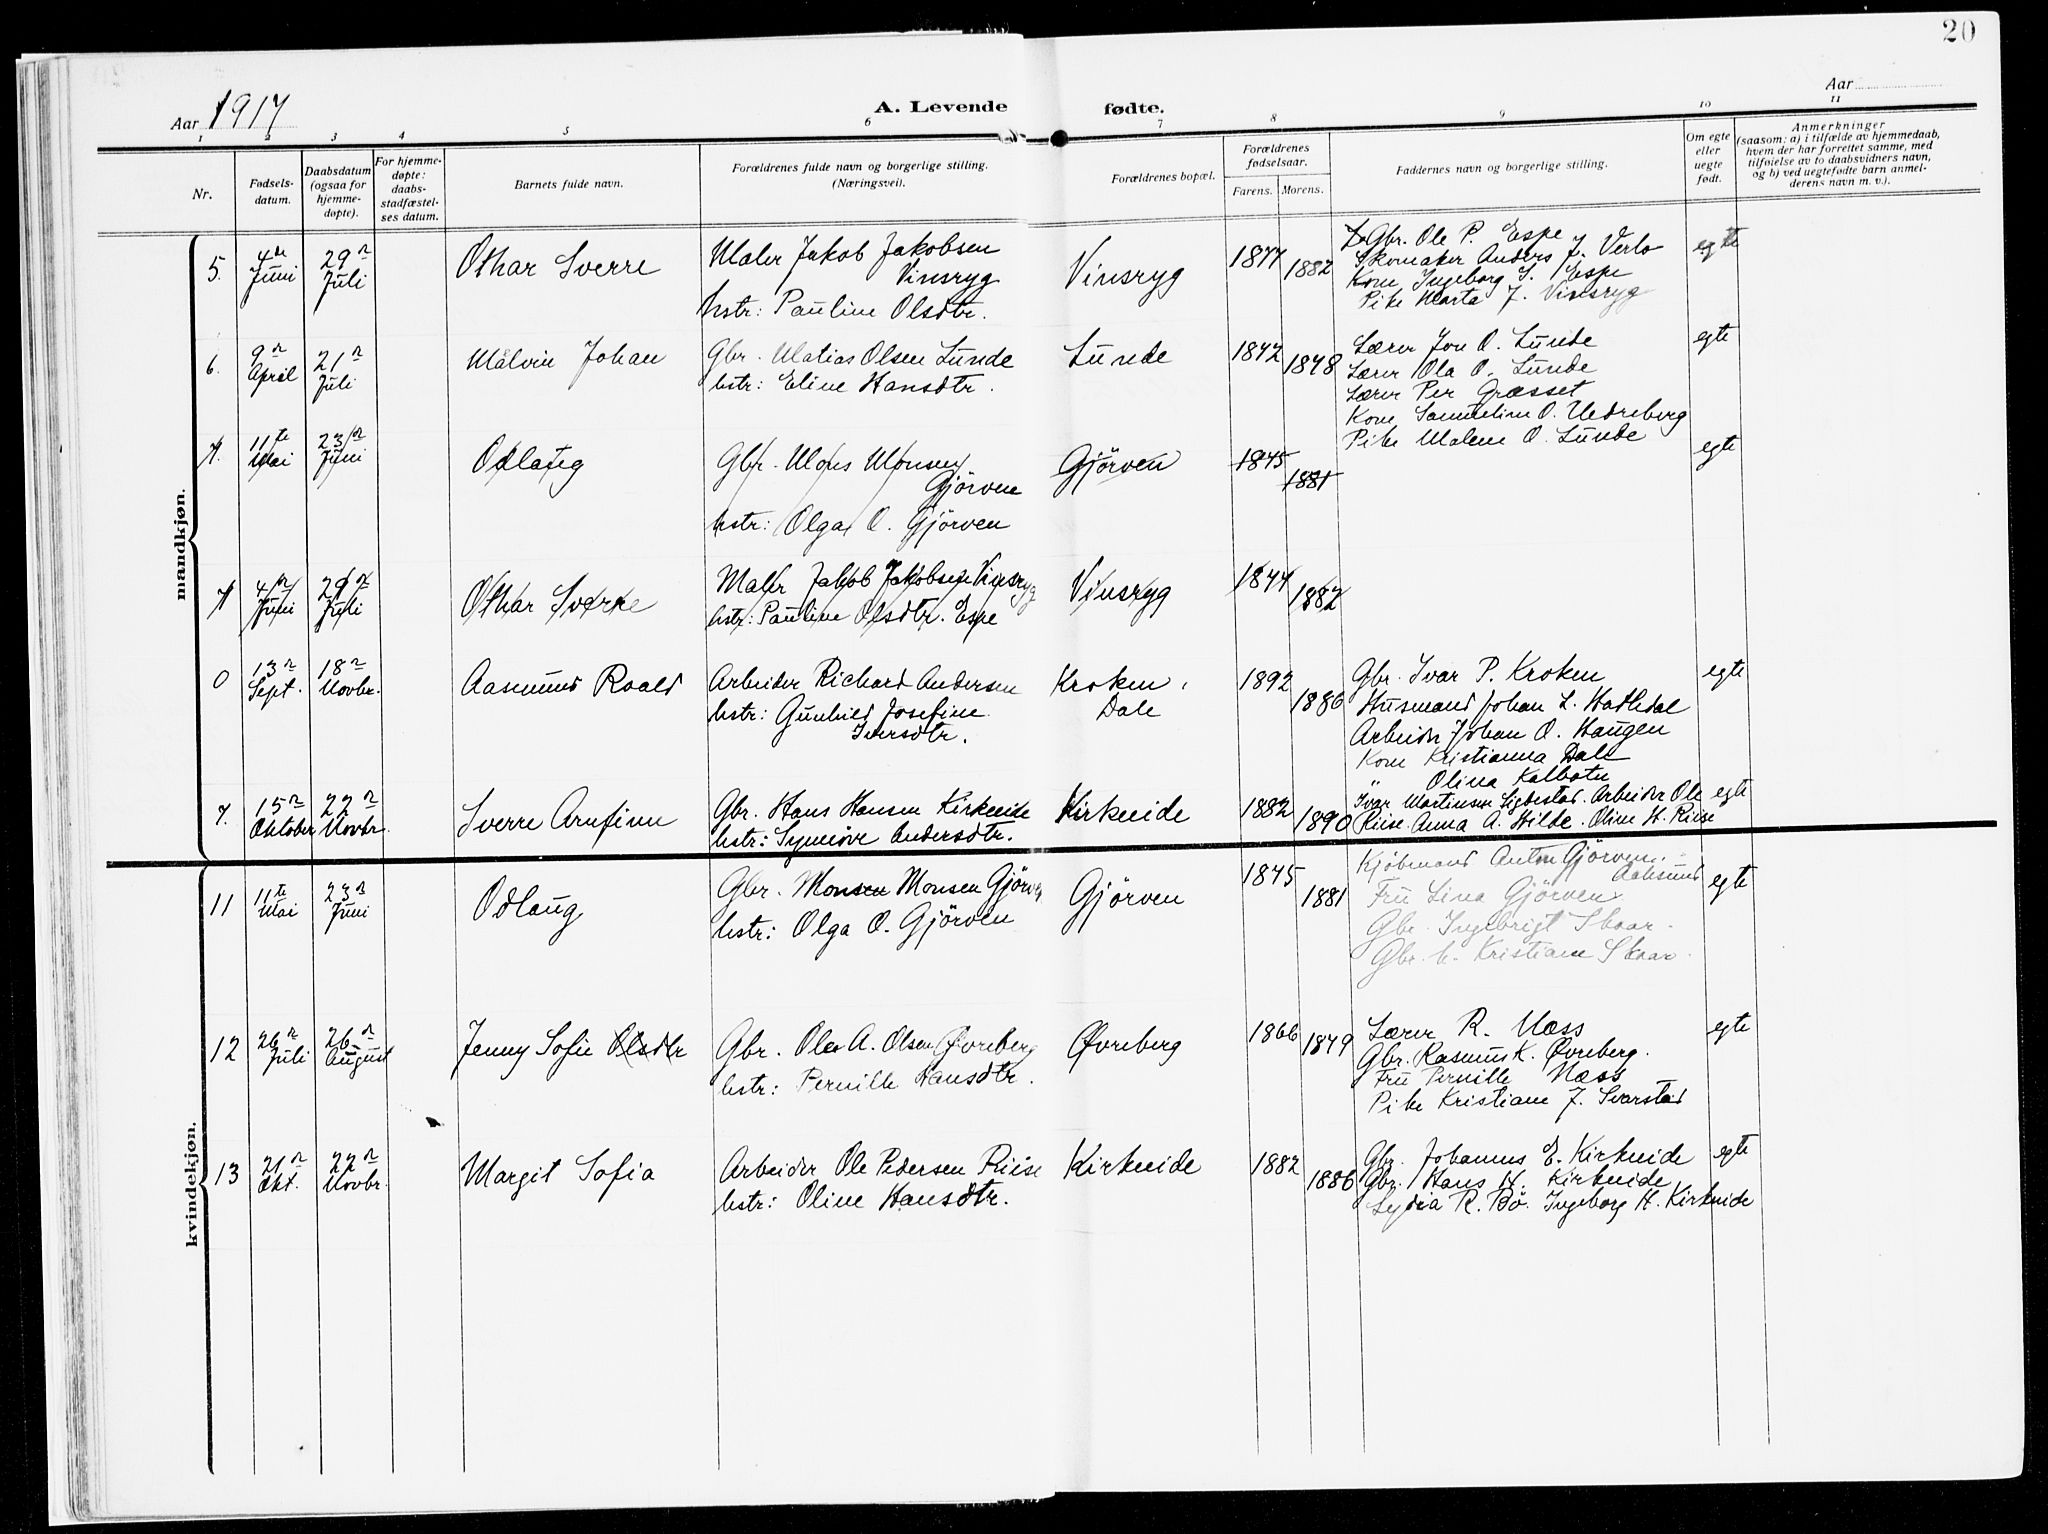 20
Aar 1917
A. Levende fødte.
Aar
1 2 3 4 5 6 7 8 9 10 11
Nr.
Fødsels-
datum.
Daabsdatum
(ogsaa for
hjemme-
døpte).
For hjemme-
døpte:
daabs-
stadfæstel-
ses datum.
Barnets fulde navn.
Forældrenes fulde navn og borgerlige stilling.
(Næringsvei).
Forældrenes bopæl.
Forældrenes
fødselsaar.
Farens. Morens.
Faddernes navn og borgerlige stilling.
Om egte
eller
uegte
født.
Anmerkninger
(saasom: a) i tilfælde av hjemmedaab,
hvem der har forrettet samme, med
tilføielse av to daabsvidners navn,
og b) ved uegtefødte barn anmel-
derens navn m. v.).
mandkjøn.
5. 4de Juni 29n Juli
Othar Sverre
Maler Jakob Jakobsen
Vinsryg
hstr: Pauline Olsdtr.
Vinsryg
1877 1882
Gbr. Ole P. Espe
Skomaker Anders J. Verlo
Kone Ingeborg S. Espe
Pike Marta J. Vinsryg
egte
6. 9n April 21n Juli
Målvin Johan
Gbr. Matias Olsen Lunde
hstr: Eline Hansdtr.
Lunde
1872 1878
Lærer Jon O. Lunde
Lærer Ola O. Lunde
Lærer Per Græsset
Kone Samueline O. Nedreberg
Pike Malene O. Lunde
egte
11te Mai 23n Juni
Odlaug
Gbr. Mons Monsen
Gjörven
hstr: Olga O. Gjörven
Gjörven
1875 1881
egte
4n Juni 29n Juli
Othar Sverre
Maler Jakob Jakobsen Vinsryg
hstr: Pauline Olsdtr. Espe
Vinsryg
1877 1882
0 13n Sept. 18n Novbr.
Aasmund Roald
Arbeider Richard Andersen
hstr: Gunhild Josefine
Iversdtr.
Kroken,
Dale
1892 1886
Gbr. Ivar P. Kroken
Husmand Johan L. Hatledal
Arbeider Johan O. Haugen
Kone Kristianna Dale
" Olina Kalbotn
egte
7. 15n Oktober 22n Novbr.
Sverre Arnfinn
Gbr. Hans Hansen Kirkeide
hstr: Synnöve Andersdtr.
Kirkeide
1882 1890
Ivar Martinsen Sigdestad. Arbeider Ole
Riise. Anna A. Hilde. Oline H. Riise
egte
kvindekjøn.
11 11te Mai 23n Juni
Odlaug
Gbr. Monsen Monsen Gjörven
hstr: Olga O. Gjörven
Gjörven
1875 1881
Kjöbmand Anton Gjörven.
Aalesund
Fru Lina Gjörven
Gbr. Ingebrigt Skaar.
Gbr. k. Kristiane Skaar.
egte
12 26n Juli 26n August
Jenny Sofie Olsdtr
Gbr. Ole A. Olsen Øvreberg
hstr: Pernille Hansdtr.
Øvreberg
1866 1879
Lærer R. Næss
Gbr. Rasmus K. Øvreberg.
Fru Pernille Næss
Pike Kristiane J. Svarstad
egte
13 21n Okt. 22n Novbr.
Margit Sofia
Arbeider Ole Pedersen Riise
hstr: Oline Hansdtr.
Kirkeide
1882 1886
Gbr. Johannes E. Kirkeide
Gbr. Hans H. Kirkeide
Lydia R. Bö. Ingeborg H. Kirkeide
egte